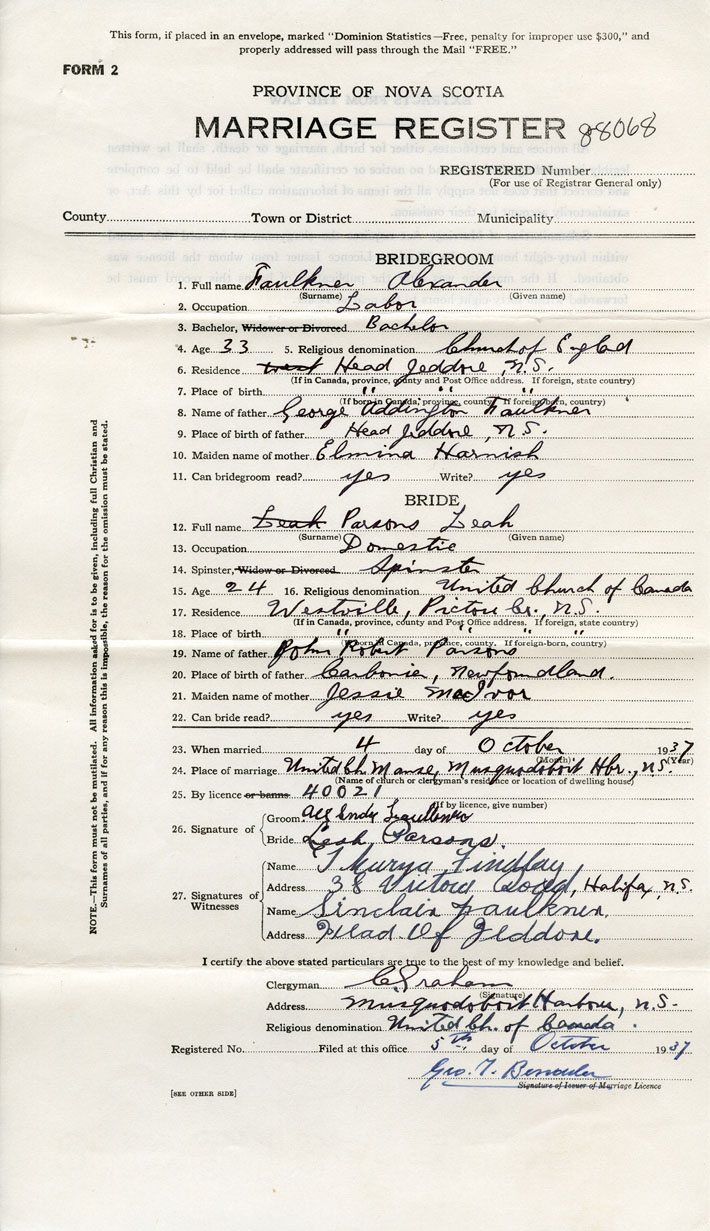 This form, if placed in an envelope, marked "Dominion Statistics—Free, penalty for improper use $300," and
properly addressed will pass through the Mail "FREE."
FORM 2
PROVINCE OF NOVA SCOTIA
MARRIAGE REGISTER 88068
REGISTERED Number
(For use of Registrar General only)
County Town or District Municipality
BRIDEGROOM
1. Full name Faulkner Alexander
(Surname) (Given name)
2. Occupation Labor
3. Bachelor, Widower or Divorced Bachelor
4. Age 33 5. Religious denomination Church of Englad
6. Residence Head Jeddore, N.S.
(If in Canada, province, county and Post Office address. If foreign, state country)
7. Place of birth " " "
(If born in Canada, province, county. If foreign-born, country)
8. Name of father George Addington Faulkner
9. Place of birth of father Head Jeddore, N.S.
10. Maiden name of mother Elmina Harnish
11. Can bridegroom read? yes Write? yes
BRIDE
12. Full name Leah Parsons Leah
(Surname) (Given name)
13. Occupation Domestic
14. Spinster, Widow or Divorced Spinster
15. Age 24 16. Religious denomination United Church of Canada
17. Residence Westville, Pictou Co., N.S.
(If in Canada, province, county and Post Office address. If foreign, state country)
18. Place of birth " " " "
(If born in Canada, province, county. If foreign-born, country)
19. Name of father John Robert Parsons
20. Place of birth of father Carbonier, Newfoundland.
21. Maiden name of mother Jessie MacIvor
22. Can bride read? yes Write? yes
23. When married 4 day of October 1937
(Month) (Year)
24. Place of marriage United Ch. Manse, Musquodoboit Hbr., N.S.
(Name of church or clergyman's residence or location of dwelling house)
25. By licence or banns 40021
(If by licence, give number)
26. Signature of Groom
Bride Leah Parsons.
27. Signatures of Witnesses
Name Findlay
Address 38 Victory Road, Halifax, N.S.
Name Sinclair Faulkner.
Address Head Of Jeddore.
I certify the above stated particulars are true to the best of my knowledge and belief.
Clergyman C Graham
(Signature)
Address Musquodoboit Harbour, N.S.
Religious denomination United Ch. of Canada.
Registered No. Filed at this office 5th day of October 1937
Geo. T.
Signature of Issuer of Marriage Licence
[SEE OTHER SIDE]
NOTE.—This form must not be mutilated. All information asked for is to be given, including full Christian and
Surnames of all parties, and if for any reason this is impossible, the reason for the omission must be stated.